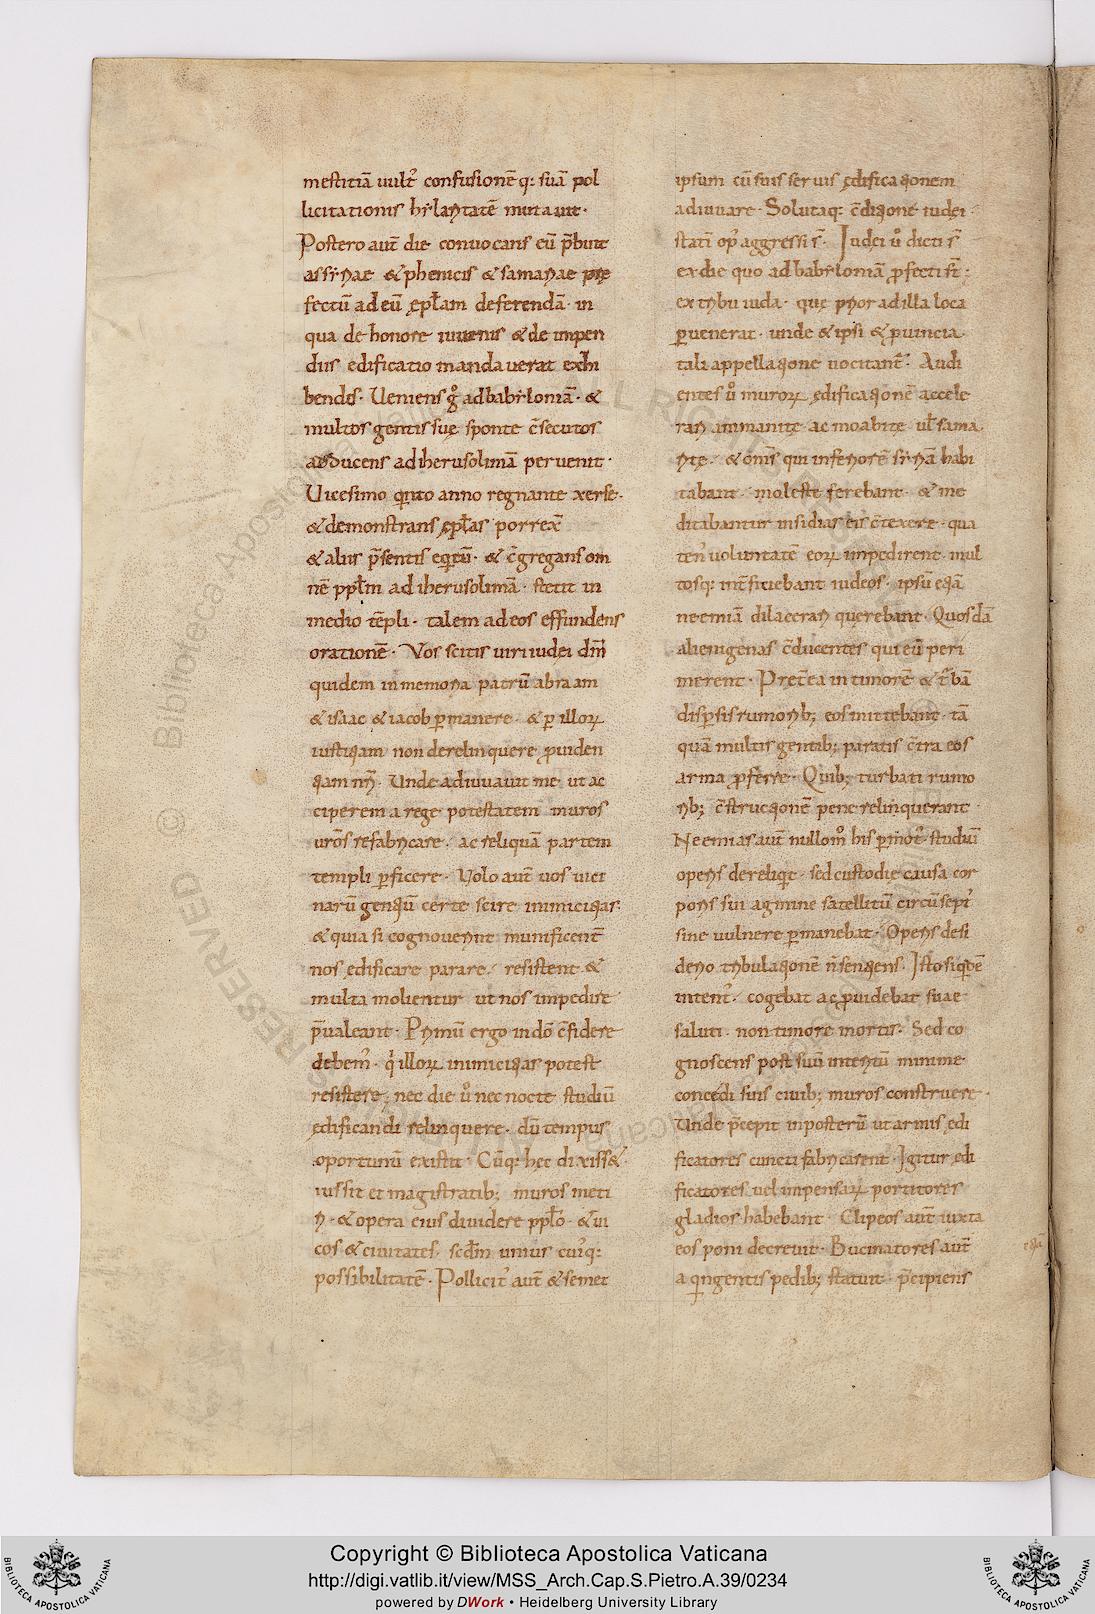 mestitiā uult᷒ confusionē q: suā pol
licitationis hẏlaritatē mutauit·
Postero aut̄ die conuocans eū p̄buit
assẏriae &phenicis &samariae pre
fectū adeū ęp̄lam deferendā· in
qua de honore iuuenis &de inpen
diis edificatio mandauerat exhi
bendis· Ueniens gͦ adbabẏloniā· &
multos gentis suę sponte c̄secutos
adducens adiherusolimā peruenit·
Uicesimo qͥnto anno regnante xerse·
&demonstrans ęp̄las porrex̄
&aliis p̄sentis eqͥtū· & c̄gregans om
nē pp̄lm adiherusolimā· stetit in
medio tēpli· talem adeos effundens
orationē· Vos scitis uiri iudęi dm̄
quidem in memoria patrū abraam
&isaac &iacob p̱manere· &p̱ illoꝝ
iustitiam non derelinquere ꝓuiden
tiam nr̄i· Unde adiuuauit me ut ac
ciperem a rege potestatem muros
ur̄os refabricare· ac reliquā partem
templi p̱ficere· Volo aut̄ uos uici
narū gentiū certe scire inimicitias·
&quia si cognouerint munificent̄
nos ędificare parare· resistent &
multa molientur ut nos impedire
p̄ualeant· Primū ergo indō c̄fidere
debem᷒· qͥ illoꝝ inimicitias potest
resistere· nec die uͦ nec nocte studiū
ędificandi relinquere· dū tempus
oportunū existit· Cūq: hęc dixiss&
iussit et magistratib; muros meti
ri· &opera eius diuidere pp̄lo· &ui
cos &ciuitates· scd̄m unius cui᷒q:
possibilitatē· Pollicit᷒ aut̄ &semet
ipsum cū suis seruis ędificationem
adiuuare· Solutaq: c̄ditione iudei·
statī op᷒ aggressi s̄· Iudei uͦ dicti s̄
ex die quo ad babẏloniā ꝓfecti st̄:
ex tribu iuda· quę prior ad illa loca
p̱uenerat· unde &ipsi &ꝓuincia
tali appellatione uocitant᷒· Audi
entes uͦ muroꝝ ędificationē accele
rari ammanitę ac moabitę ul̄ sama
ritę· &om̄s qui inferiorē sẏriā habi
tabant· moleste ferebant· &me
ditabantur insidias eis c̄texere· qua
ten᷒ uoluntatē eoꝝ impedirent· mul
tosq: int̄ficiebant iudeos· ipsū etiā
neemiā dilacerari querebant· Quosdā
alienigenas c̄ducentes qui eū peri
merent· Pret̄ea in timorē &tᷣbā
disp̱sis rumorib; eos mittebant· tā
quā multis gentib; paratis c̄tra eos
arma ꝓferre· Quib; turbati rumo
rib; c̄structionē pene relinquerant·
Neemias aut̄ nullomͦ his p̱mot᷒ studiū
operis dereliqͥt· sed custodie causa cor
poris sui agmine satellitū circūsept᷒
sine uulnere p̱manebat· Operis desi
derio tribulationē n̄ sentiens· Isto siqͥdē
intent᷒· cogebat ac ꝓuidebat suae
saluti· non timore mortis· Sed co
gnoscens post suū interitū minime
concędi suis ciuib; muros construere·
Unde p̄cepit inposterū ut armis ędi
ficatores cuncti fabricarent· Igitur ędi
ficatores uel impensaꝝ portitores
gladios habebant· Clipeos aut̄ iuxta
eos poni decreuit· Bucinatores aut̄
a qͥngentis pedib; statuit· p̄cipiens
Copyright © Biblioteca Apostolica Vaticana
http://digi.vatlib.it/view/MSS_Arch.Cap.S.Pietro.A.39/0234
powered by DWork • Heidelberg University Library